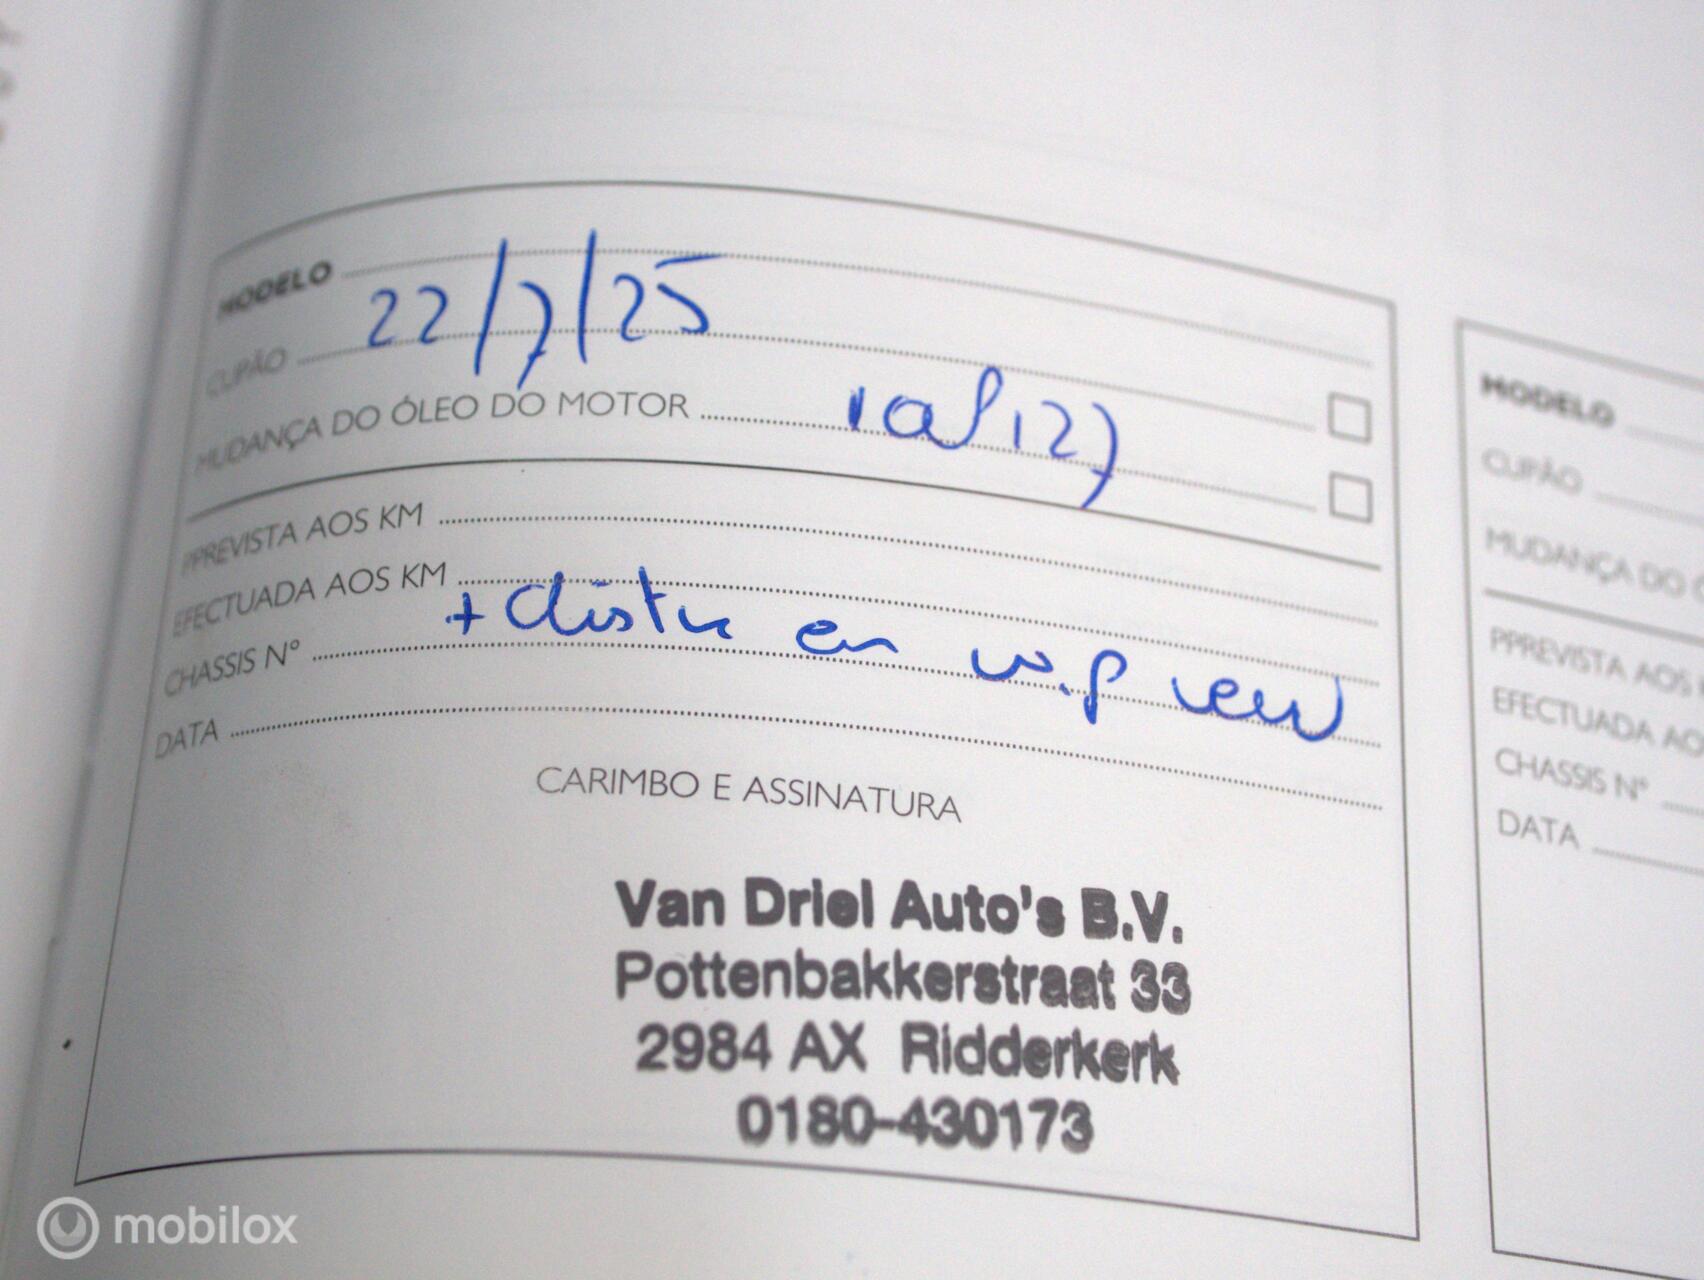 MODELO
22/7/25
CUPÃO
MUDANÇA DO ÓLEO DO MOTOR
PPREVISTA AOS KM
EFECTUADA AOS KM
+ distr en w.p
CHASSIS N°
DATA
CARIMBO E ASSINATURA
Van Driel Auto's B.V.
Pottenbakkerstraat 33
2984 AX Ridderkerk
0180-430173
MODELO
CUPÃO
MUDANÇA DO Ó
PPREVISTA AOS K
EFECTUADA AOS
CHASSIS N°
DATA
mobilox